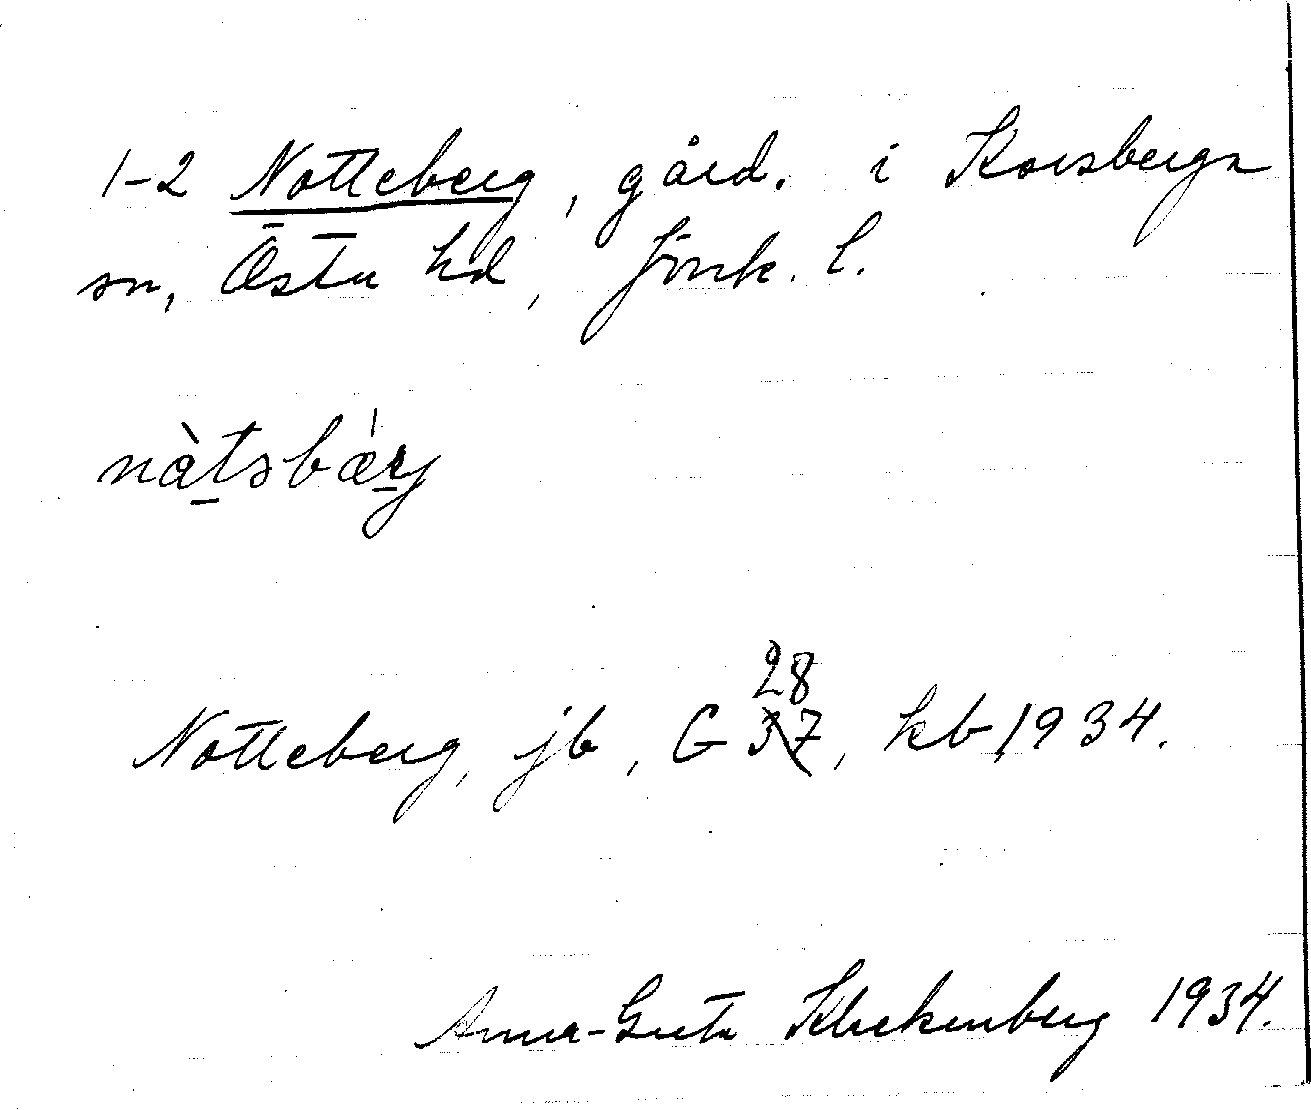 1-2 Notteberg, gård. i Korsberga
sn, Östra hd, Jönk. l.
nàtsbæ̀rj
Notteberg, jb, G 28 37, kb 1934.
Anna-Greta Kleckenberg 1934.